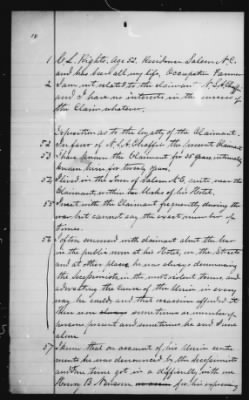 18
1 C. L. Rights, Age 52. Residence Salem N.C.
and has been all my life, Occupation Farmer
2 I am not related to the claimant N. S. A. Chaffin
and I have no interest in the success of
the Claim whatever.
Deposition as to the loyalty of the Claimant.
52 In favor of N. S. A. Chaffin the present Claimant
53 I have known the Claimant for 35 years intimately
known him for twenty years.
54 I lived in the town of Salem N.C. quite near the
Claimant, within two blocks of his Hotel.
55 I met with the Claimant frequently during the
war, but cannot say the exact number of
times.
56 I often conversed with claimant about the war
in the public room at his Hotel, on the Streets
and at other places, he was always denouncing
the Secessionists in the most violent terms, and
advocating the cause of the Union in every
way he could, and that occasion afforded it
there were always sometimes a number of
persons present and sometimes he and I were
alone
57 I knew that on account of his Union senti-
ments he was denounced by the Secessionists
and one time got in a difficulty with one
Henry B. for his expressing